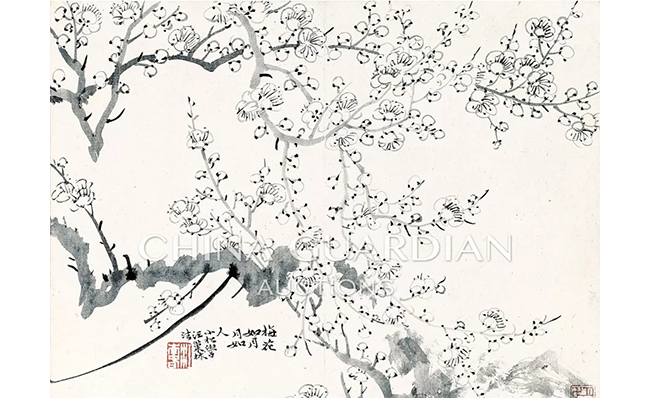 CHINA GUARDIAN
AUCTIONS
梅花
如月
月如
人
小松學
汪巢林
法